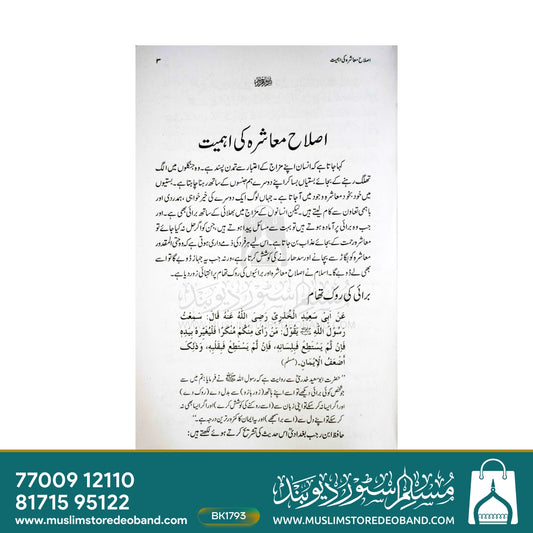 اصلاح معاشرہ کی اہمیت
۳
اصلاح معاشرہ کی اہمیت
کہا جاتا ہے کہ انسان اپنے مزاج کے اعتبار سے تمدن پسند ہے۔ وہ جنگلوں میں الگ
تھلگ رہنے کے بجائے بستیاں بسا کر اپنے دوسرے ہم جنسوں کے ساتھ رہنا چاہتا ہے۔ بستیوں
میں خود بخود معاشرہ وجود میں آ جاتا ہے۔ جہاں لوگ ایک دوسرے کی خیر خواہی، ہمدردی اور
باہمی تعاون سے کام لیتے ہیں۔ لیکن انسانوں کے مزاج میں بھلائی کے ساتھ برائی بھی ہے۔ اور
جب وہ برائی پر آمادہ ہوتے ہیں تو بہت سے مسائل پیدا ہوتے ہیں، جن کو اگر حل نہ کیا جائے تو
معاشرہ رحمت کے بجائے عذاب بن جاتا ہے۔ اس لیے ہر فرد کی ذمے داری ہوتی ہے کہ وہ حتی المقدور
معاشرہ کو بگاڑ سے بچانے اور سدھارنے کی کوشش کرتا رہے، ورنہ جب یہ جہاز ڈوبے گا تو اسے
بھی لے ڈوبے گا۔ اسلام نے اصلاح معاشرہ اور برائیوں کی روک تھام پر انتہائی زور دیا ہے۔
برائی کی روک تھام
عَنْ أَبِي سَعِيدٍ الْخُدْرِيِّ رَضِيَ اللَّهُ عَنْهُ قَالَ: سَمِعْتُ
رَسُوْلَ اللَّهِ ﷺ يَقُوْلُ: مَنْ رَأَى مِنْكُمْ مُنْكَرًا فَلْيُغَيِّرْهُ بِيَدِهِ
فَإِنْ لَمْ يَسْتَطِعْ فَبِلِسَانِهِ، فَإِنْ لَمْ يَسْتَطِعْ فَبِقَلْبِهِ، وَذٰلِكَ
أَضْعَفُ الْإِيْمَانِ. (مسلم)
”حضرت ابو سعید خدریؓ سے روایت ہے کہ رسول اللہ ﷺ نے فرمایا: تم میں سے
جو شخص کوئی برائی دیکھے تو اسے اپنے ہاتھ (زور بازو) سے بدل دے (روک دے)
اور اگر ایسا نہ کر سکے تو اپنی زبان سے (اسے روکنے کی کوشش کرے) اور اگر ایسا بھی نہ
کر سکے تو اپنے دل سے (اسے برا سمجھے) اور یہ ایمان کا کمزور ترین درجہ ہے۔“
حافظ ابن رجب بغدادیؒ اس حدیث کی تشریح کرتے ہوئے لکھتے ہیں:
77009 12110
81715 95122
www.muslimstoredeoband.com
BK1793
مسلم سٹور دیوبند
WWW.MUSLIMSTOREDEOBAND.COM